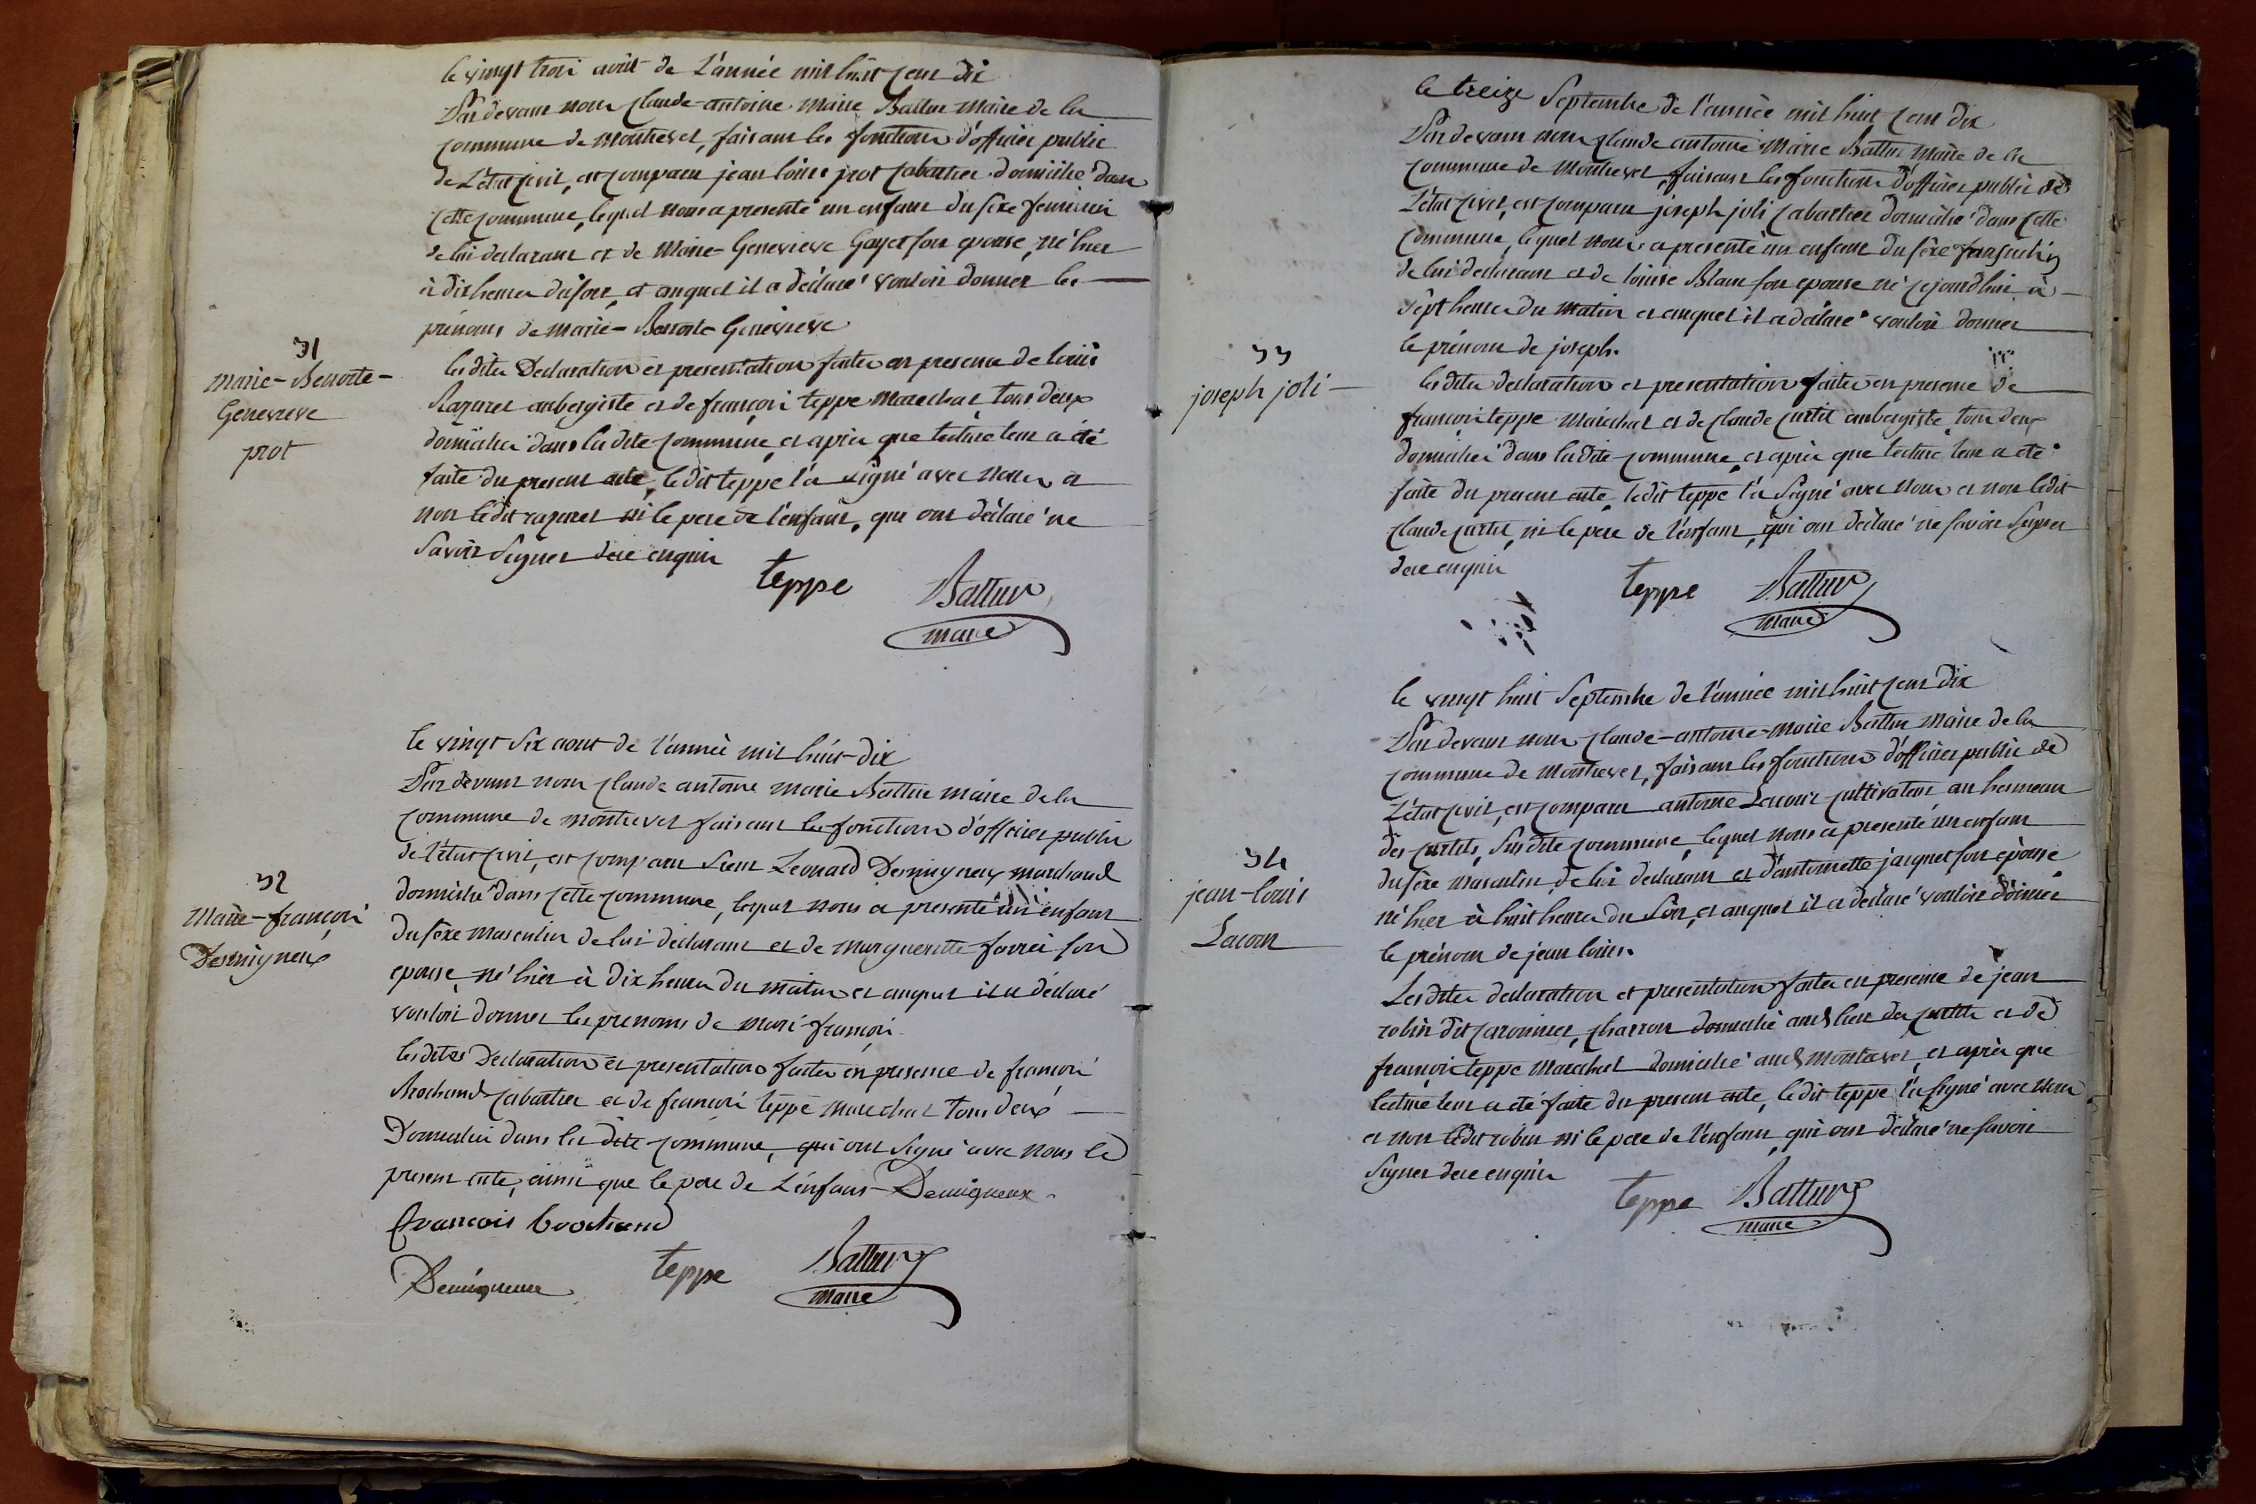 le vingt trois août de L'année mil huit cent dix
Par devant nous Claude-antoine Marie Battur Maire de la
commune de Montrevel, faisant les fonctions d'officier public
de L'état civil, est comparu jean louis prot cabartier domicilié dans
cette commune, lequel nous a presenté un enfant du sexe feminin
de lui declarant et de Marie-Genevieve Gayet son epouse, né hier
à dix heures du soir, et auquel il a déclaré vouloir donner les
prénoms de Marie-Benoite Génevieve
31
Marie-Benoite-
Genevieve
prot
les dites Declaration et presentation faites en presence de louis
Razurel aubergiste et de françois teppe Marechal tous deux
domiciliés dans la dite commune, et après que lecture leur a été
faite du present acte, ledit teppe l'a signé avec nous et
non ledit razurel ni le pere de l'enfant, qui ont déclaré ne
savoir signer de ce enquis
teppe Battur
maire
le vingt six aout de l'année mil huit dix
Par devant nous Claude antoine marie Battur maire de la
commune de montrevel faisant les fonctions d'officier public
de l'état civil, est comparu sieur Leonard Desmigneux marchand
domicilié dans cette commune, lequel nous a presenté un enfant
du sexe masculin de lui declarant et de Marguerite favrei son
epouse, né hier à dix heures du matin et auquel il a déclaré
vouloir donner les prenoms de Marie-françois
32
Marie-françois
Desmigneux
les dites Declaration et presentation faites en presence de françois
Brochand cabartier et de françois teppe marechal tous deux
Domiciliés dans la dite commune, qui ont signé avec nous le
present acte, ainsi que le pere de L'enfant Demigneux.
François brochand
Demigneux teppe Battur
Maire
le treize Septembre de l'année mil huit cent dix
Par devant nous Claude antoine Marie Battur Maire de la
commune de Montrevel, faisant les fonctions d'officier public de
L'état civil, est comparu joseph joli cabartier domicilié dans cette
commune, lequel nous a presenté un enfant du sexe masculin
de lui declarant et de louise Blanc son epouse né cejourdhui à
sept heures du matin et auquel il a déclaré vouloir donner
le prénom de joseph.
33
joseph joli
les dites declaration et presentation faites en presence de
françois teppe Marechal et de Claude curtil aubergiste, tous deux
domiciliés dans la dite commune, et après que lecture leur a été
faite du present acte, ledit teppe l'a signé avec nous et non ledit
Claude curtil, ni le pere de l'enfant, qui ont déclaré ne savoir signer
de ce enquis
teppe Battur
Maire
le vingt huit Septembre de l'année mil huit cent dix
Par devant nous Claude-antoine-Marie Battur Maire de la
commune de Montrevel, faisant les fonctions d'officier public de
L'état civil, est comparu antoine Lacour cultivateur au hameau
des curtils, susdite commune, lequel nous a presenté un enfant
du sexe masculin de lui declarant et d'antoinette jacquet son epouse
né hier à huit heures du soir, et auquel il a declaré vouloir donner
le prénom de jean louis.
34
jean-louis
Lacour
Les dites declaration et presentation faites en presence de jean
robin dit caronnier, charron domicilié audt lieu des curtils et de
françois teppe Marechal domicilié audt Montrevel, et après que
lecture leur a été faite du present acte, ledit teppe l'a signé avec nous
et non ledit robin ni le pere de l'enfant, qui ont déclaré ne savoir
signer de ce enquis
teppe Battur
maire